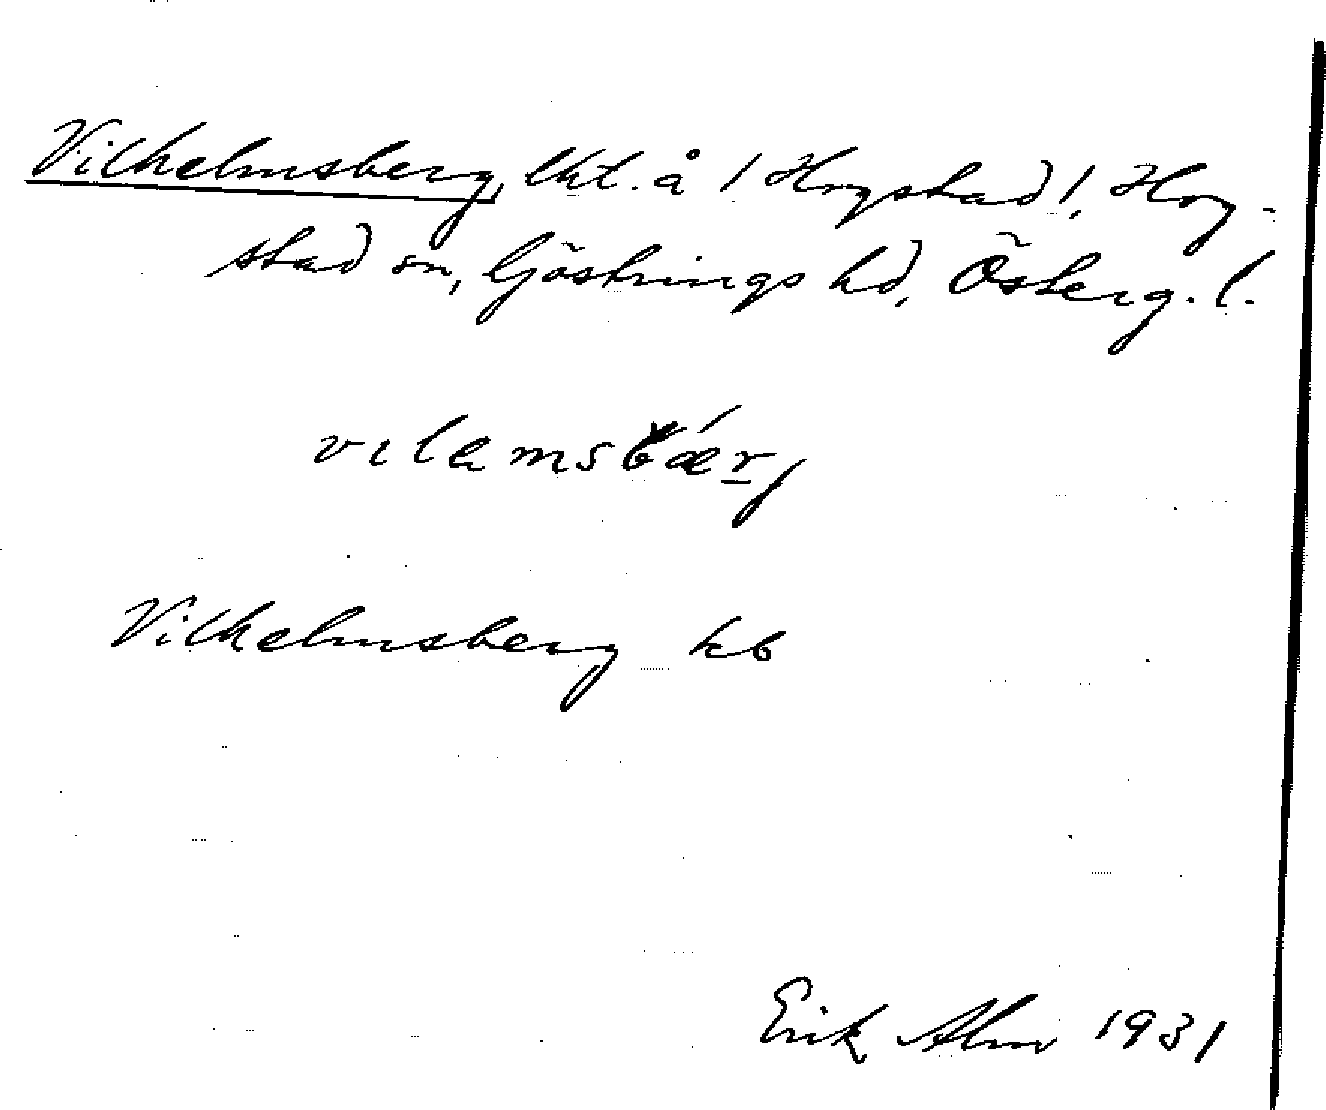 Vilhelmsberg, lht. å / Hogstad /, Hog-
stad sn, Göstrings hd, Österg. l.
vɩlamsbǽrj
Vilhelmsberg kb
Erik Alm 1931